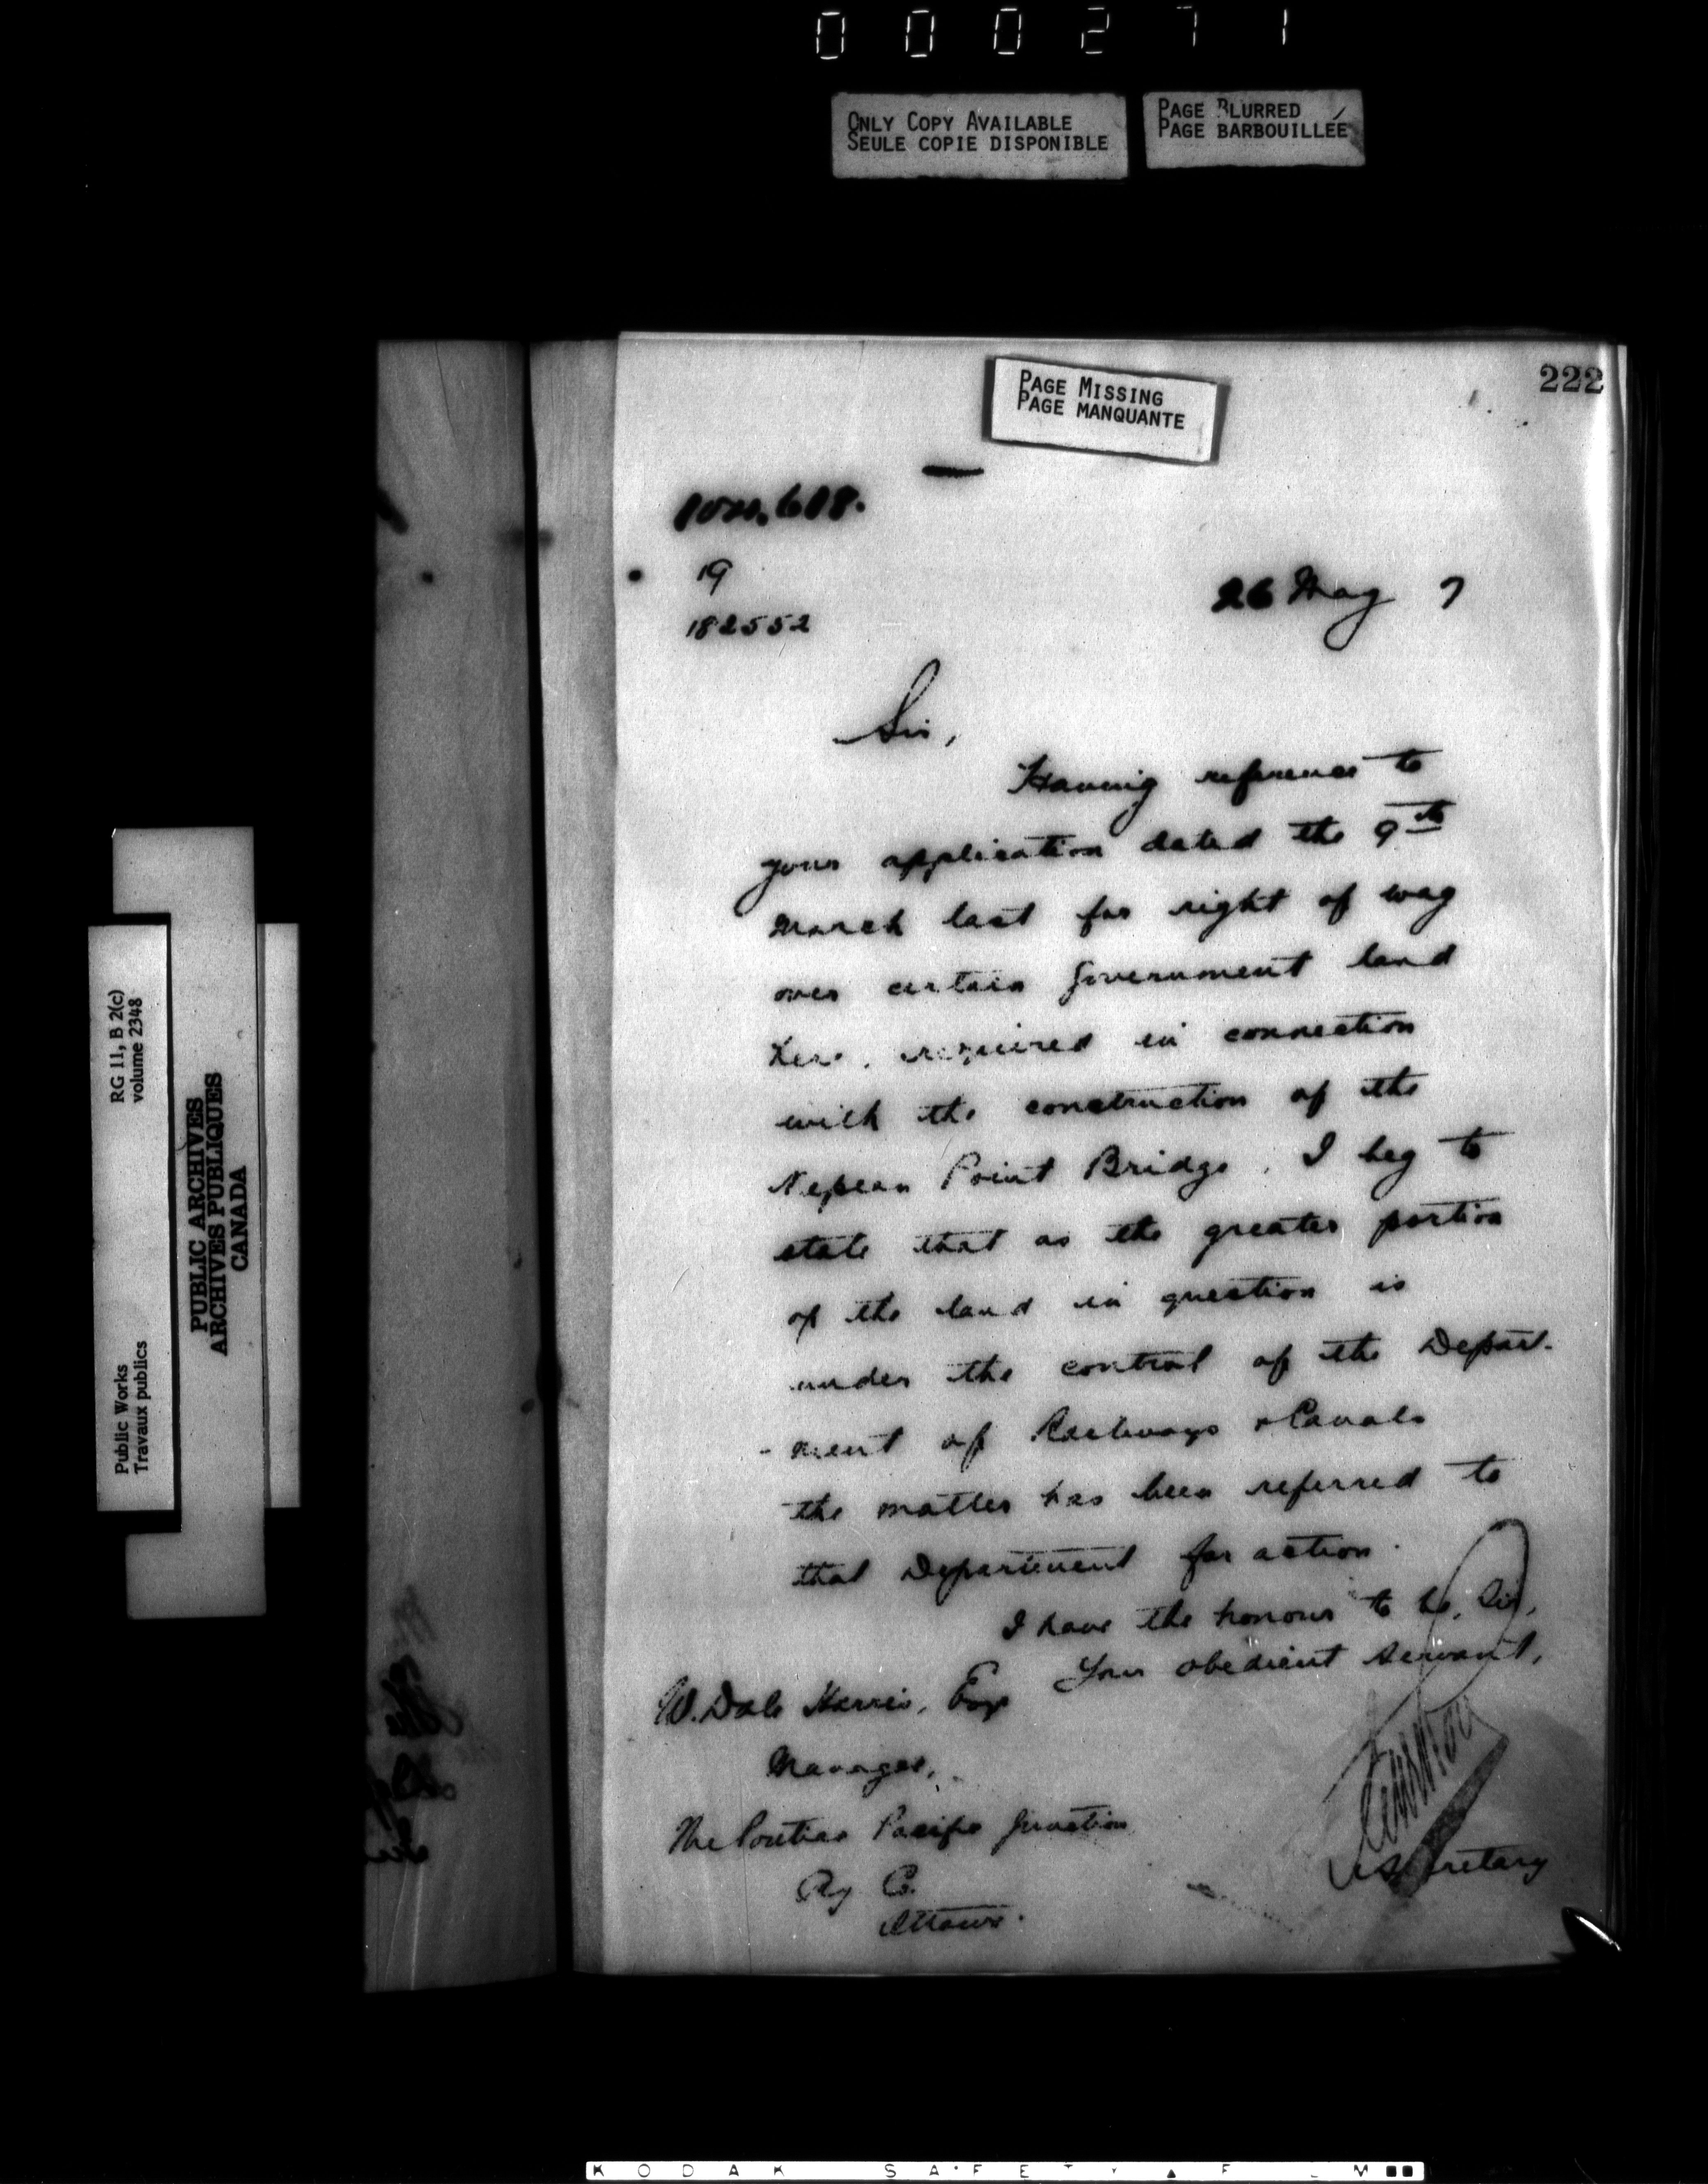 000271
ONLY COPY AVAILABLE
SEULE COPIE DISPONIBLE
PAGE BLURRED
PAGE BARBOUILLÉE
222
PAGE MISSING
PAGE MANQUANTE
19
182552
26 May 7
Sir,
Having reference to
your application dated the 9th
March last for right of way
over certain Government land
here, required in connection
with the construction of the
Nepean Point Bridge, I beg to
state that as the greater portion
of the land in question is
under the control of the Depart-
-ment of Railways & Canals
the matter has been referred to
that Department for action.
I have the honour to be, Sir,
Your obedient servant,
W. Dale Harris, Esq
Manager,
The Pontiac Pacific Junction
Ry Co.
Ottawa.
Secretary
RG 11, B 2(c)
volume 2348
Public Works
Travaux publics
PUBLIC ARCHIVES
ARCHIVES PUBLIQUES
CANADA
KODAK SAFETY FILM